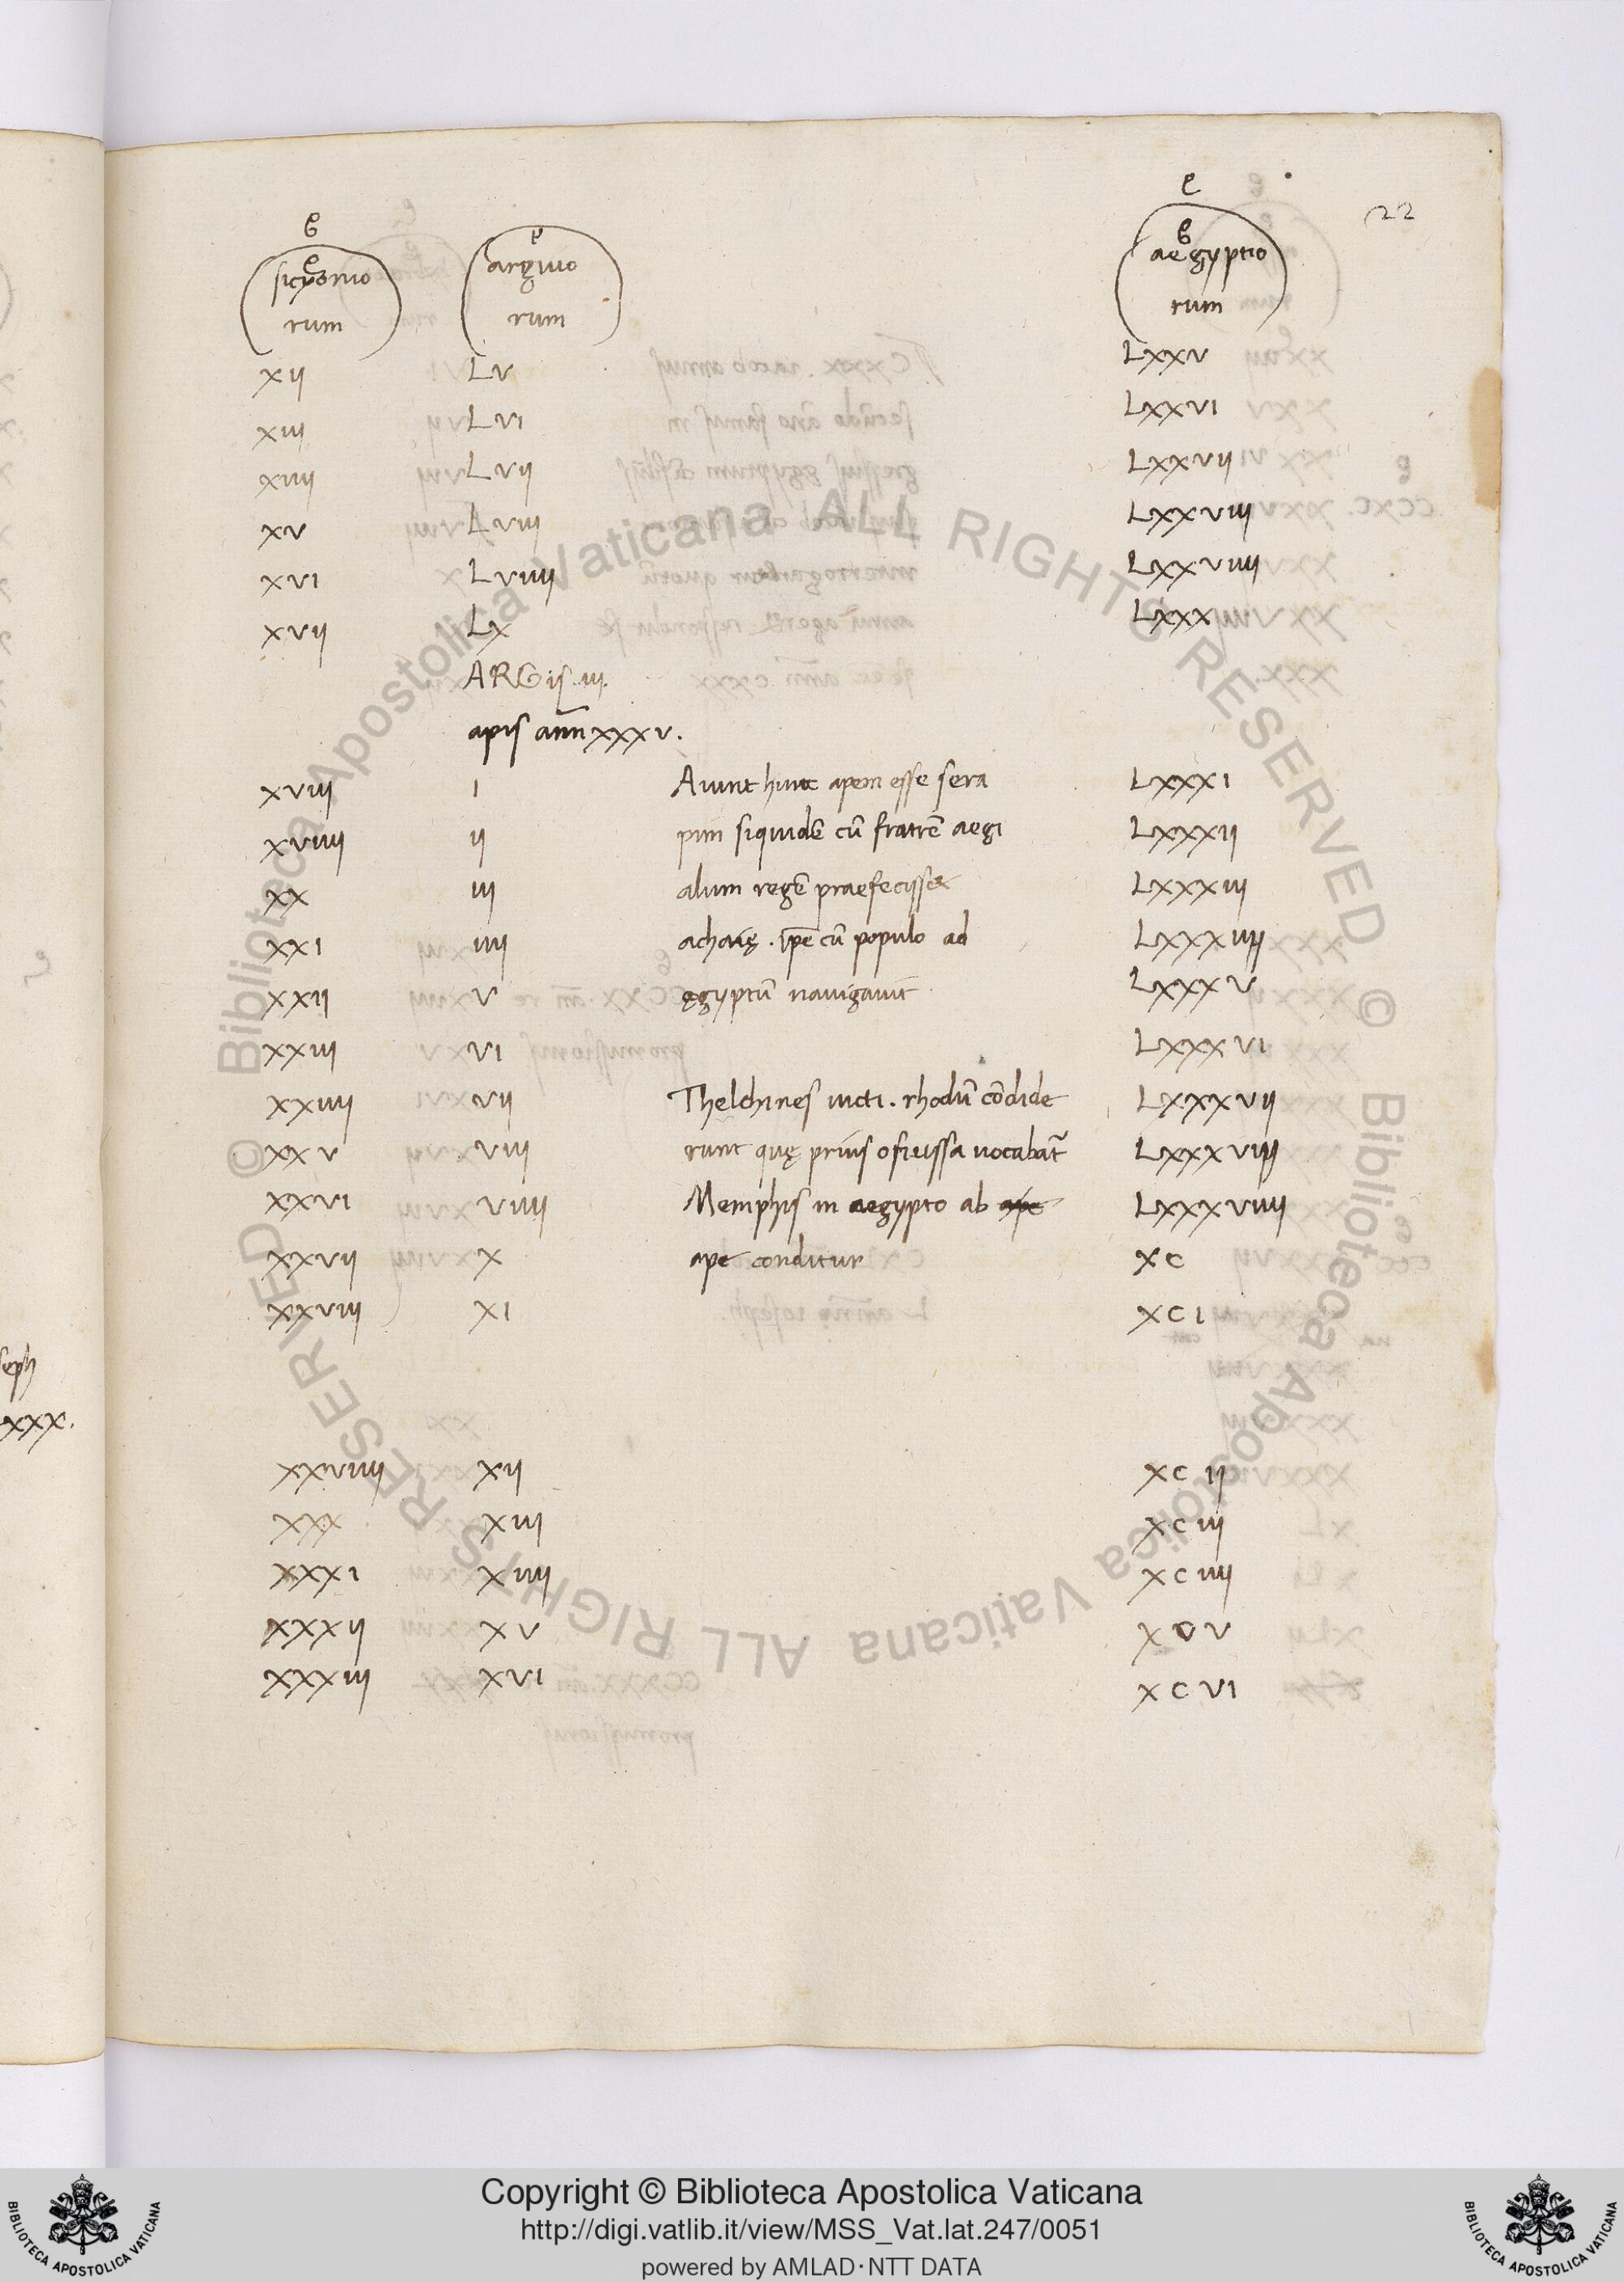 22
sicyonio argiuo aegyptio
rum rum rum
xij Lv Lxxv
xiij Lvi Lxxvi
xiiij Lvij Lxxvij
xv Lviij Lxxviij
xvi Lviiij Lxxviiij
xvij Lx Lxxx
ARGiis .iij.
apis ann̄ xxxv.
xviij i Aiunt hunc apem esse sera Lxxxi
xviiij ij pim siquidē cū fratrē aegi Lxxxij
xx iij alum regē praefecisset Lxxxiij
xxi iiij achaię . ip̄e cū populo ad Lxxxiiij
xxij v ęgyptū nauigauit Lxxxv
xxiij vi Lxxxvi
xxiiij vij Thelchines uicti . rhodū cōdide Lxxxvij
xxv viij runt quę prius ofiussa uocabat̄ Lxxxviij
xxvi viiij Memphis in aegypto ab ape Lxxxviiij
xxvij x ape conditur xc
xxviij xi xci
xxviiij xij xcij
xxx xiij xciij
xxxi xiiij xciiij
xxxij xv xcv
xxxiij xvi xcvi
seph
xxx.
Biblioteca Apostolica Vaticana ALL RIGHTS RESERVED © Biblioteca Apostolica Vaticana ALL RIGHTS RESERVED ©
Copyright © Biblioteca Apostolica Vaticana
http://digi.vatlib.it/view/MSS_Vat.lat.247/0051
powered by AMLAD·NTT DATA
BIBLIOTECA APOSTOLICA VATICANA
BIBLIOTECA APOSTOLICA VATICANA